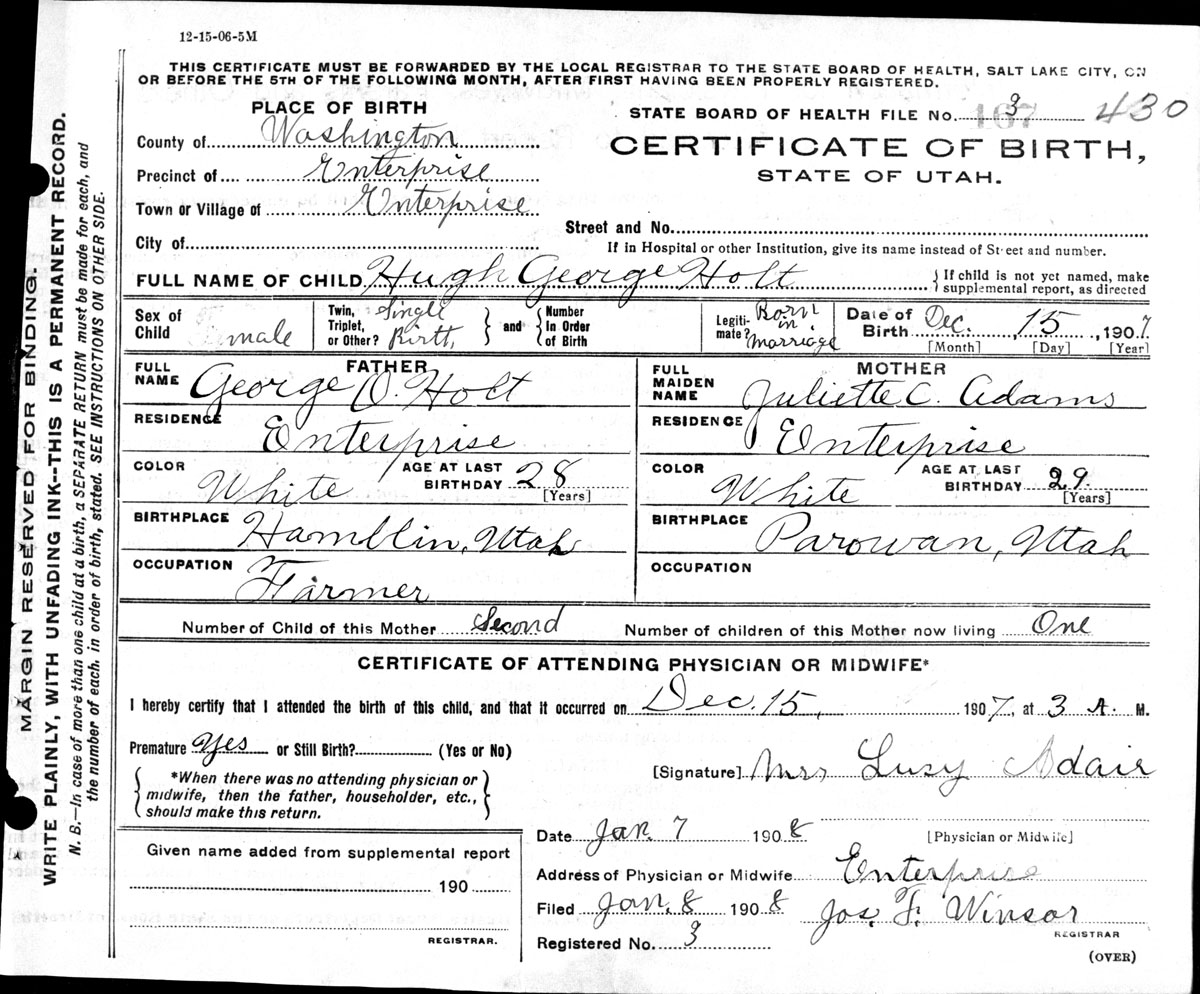 12-15-06-5M
THIS CERTIFICATE MUST BE FORWARDED BY THE LOCAL REGISTRAR TO THE STATE BOARD OF HEALTH, SALT LAKE CITY, ON
OR BEFORE THE 5TH OF THE FOLLOWING MONTH, AFTER FIRST HAVING BEEN PROPERLY REGISTERED.
PLACE OF BIRTH
STATE BOARD OF HEALTH FILE No. 167 3 430
County of Washington
CERTIFICATE OF BIRTH,
STATE OF UTAH.
Precinct of Enterprise
Town or Village of Enterprise
Street and No.
City of
If in Hospital or other Institution, give its name instead of Street and number.
FULL NAME OF CHILD Hugh George Holt
If child is not yet named, make
supplemental report, as directed
Sex of
Child male
Twin,
Triplet,
or Other?
Single
Birth,
and
Number
In Order
of Birth
Legiti-
mate?
Born
in
Marriage
Date of
Birth Dec. 15, 1907
[Month] [Day] [Year]
FATHER
FULL
NAME George O. Holt
RESIDENCE
Enterprise
COLOR
White
AGE AT LAST
BIRTHDAY 28
[Years]
BIRTHPLACE
Hamblin, Utah
OCCUPATION
Farmer
MOTHER
FULL
MAIDEN
NAME Juliette C. Adams
RESIDENCE
Enterprise
COLOR
White
AGE AT LAST
BIRTHDAY 29
[Years]
BIRTHPLACE
Parowan, Utah
OCCUPATION
Number of Child of this Mother Second
Number of children of this Mother now living One
CERTIFICATE OF ATTENDING PHYSICIAN OR MIDWIFE*
I hereby certify that I attended the birth of this child, and that it occurred on Dec. 15, 1907, at 3 A. M.
Premature Yes or Still Birth? (Yes or No)
*When there was no attending physician or
midwife, then the father, householder, etc.,
should make this return.
[Signature] Mrs Lusy Adair
Date Jan. 7 1908
[Physician or Midwife]
Given name added from supplemental report
190
REGISTRAR.
Address of Physician or Midwife Enterprise
Filed Jan. 8 1908 Jos. F. Winsor
REGISTRAR
Registered No. 3
(OVER)
MARGIN RESERVED FOR BINDING.
WRITE PLAINLY, WITH UNFADING INK--THIS IS A PERMANENT RECORD.
N. B.—In case of more than one child at a birth, a SEPARATE RETURN must be made for each, and
the number of each, in order of birth, stated. SEE INSTRUCTIONS ON OTHER SIDE.